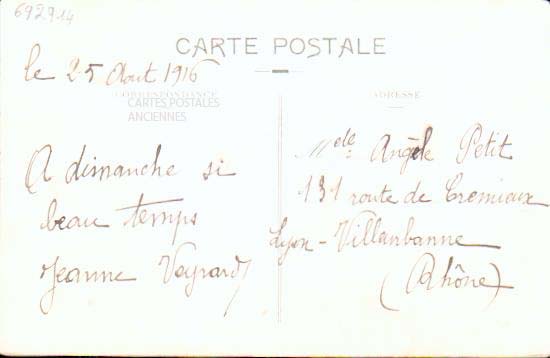 692914
CARTE POSTALE
le 25 Aout 1916
CORRESPONDANCE
CARTES POSTALES
ANCIENNES
A dimanche si
beau temps
Jeanne Veyrard
ADRESSE
Melle Angèle Petit
131 route de Cremieux
Lyon - Villeurbanne
(Rhône)